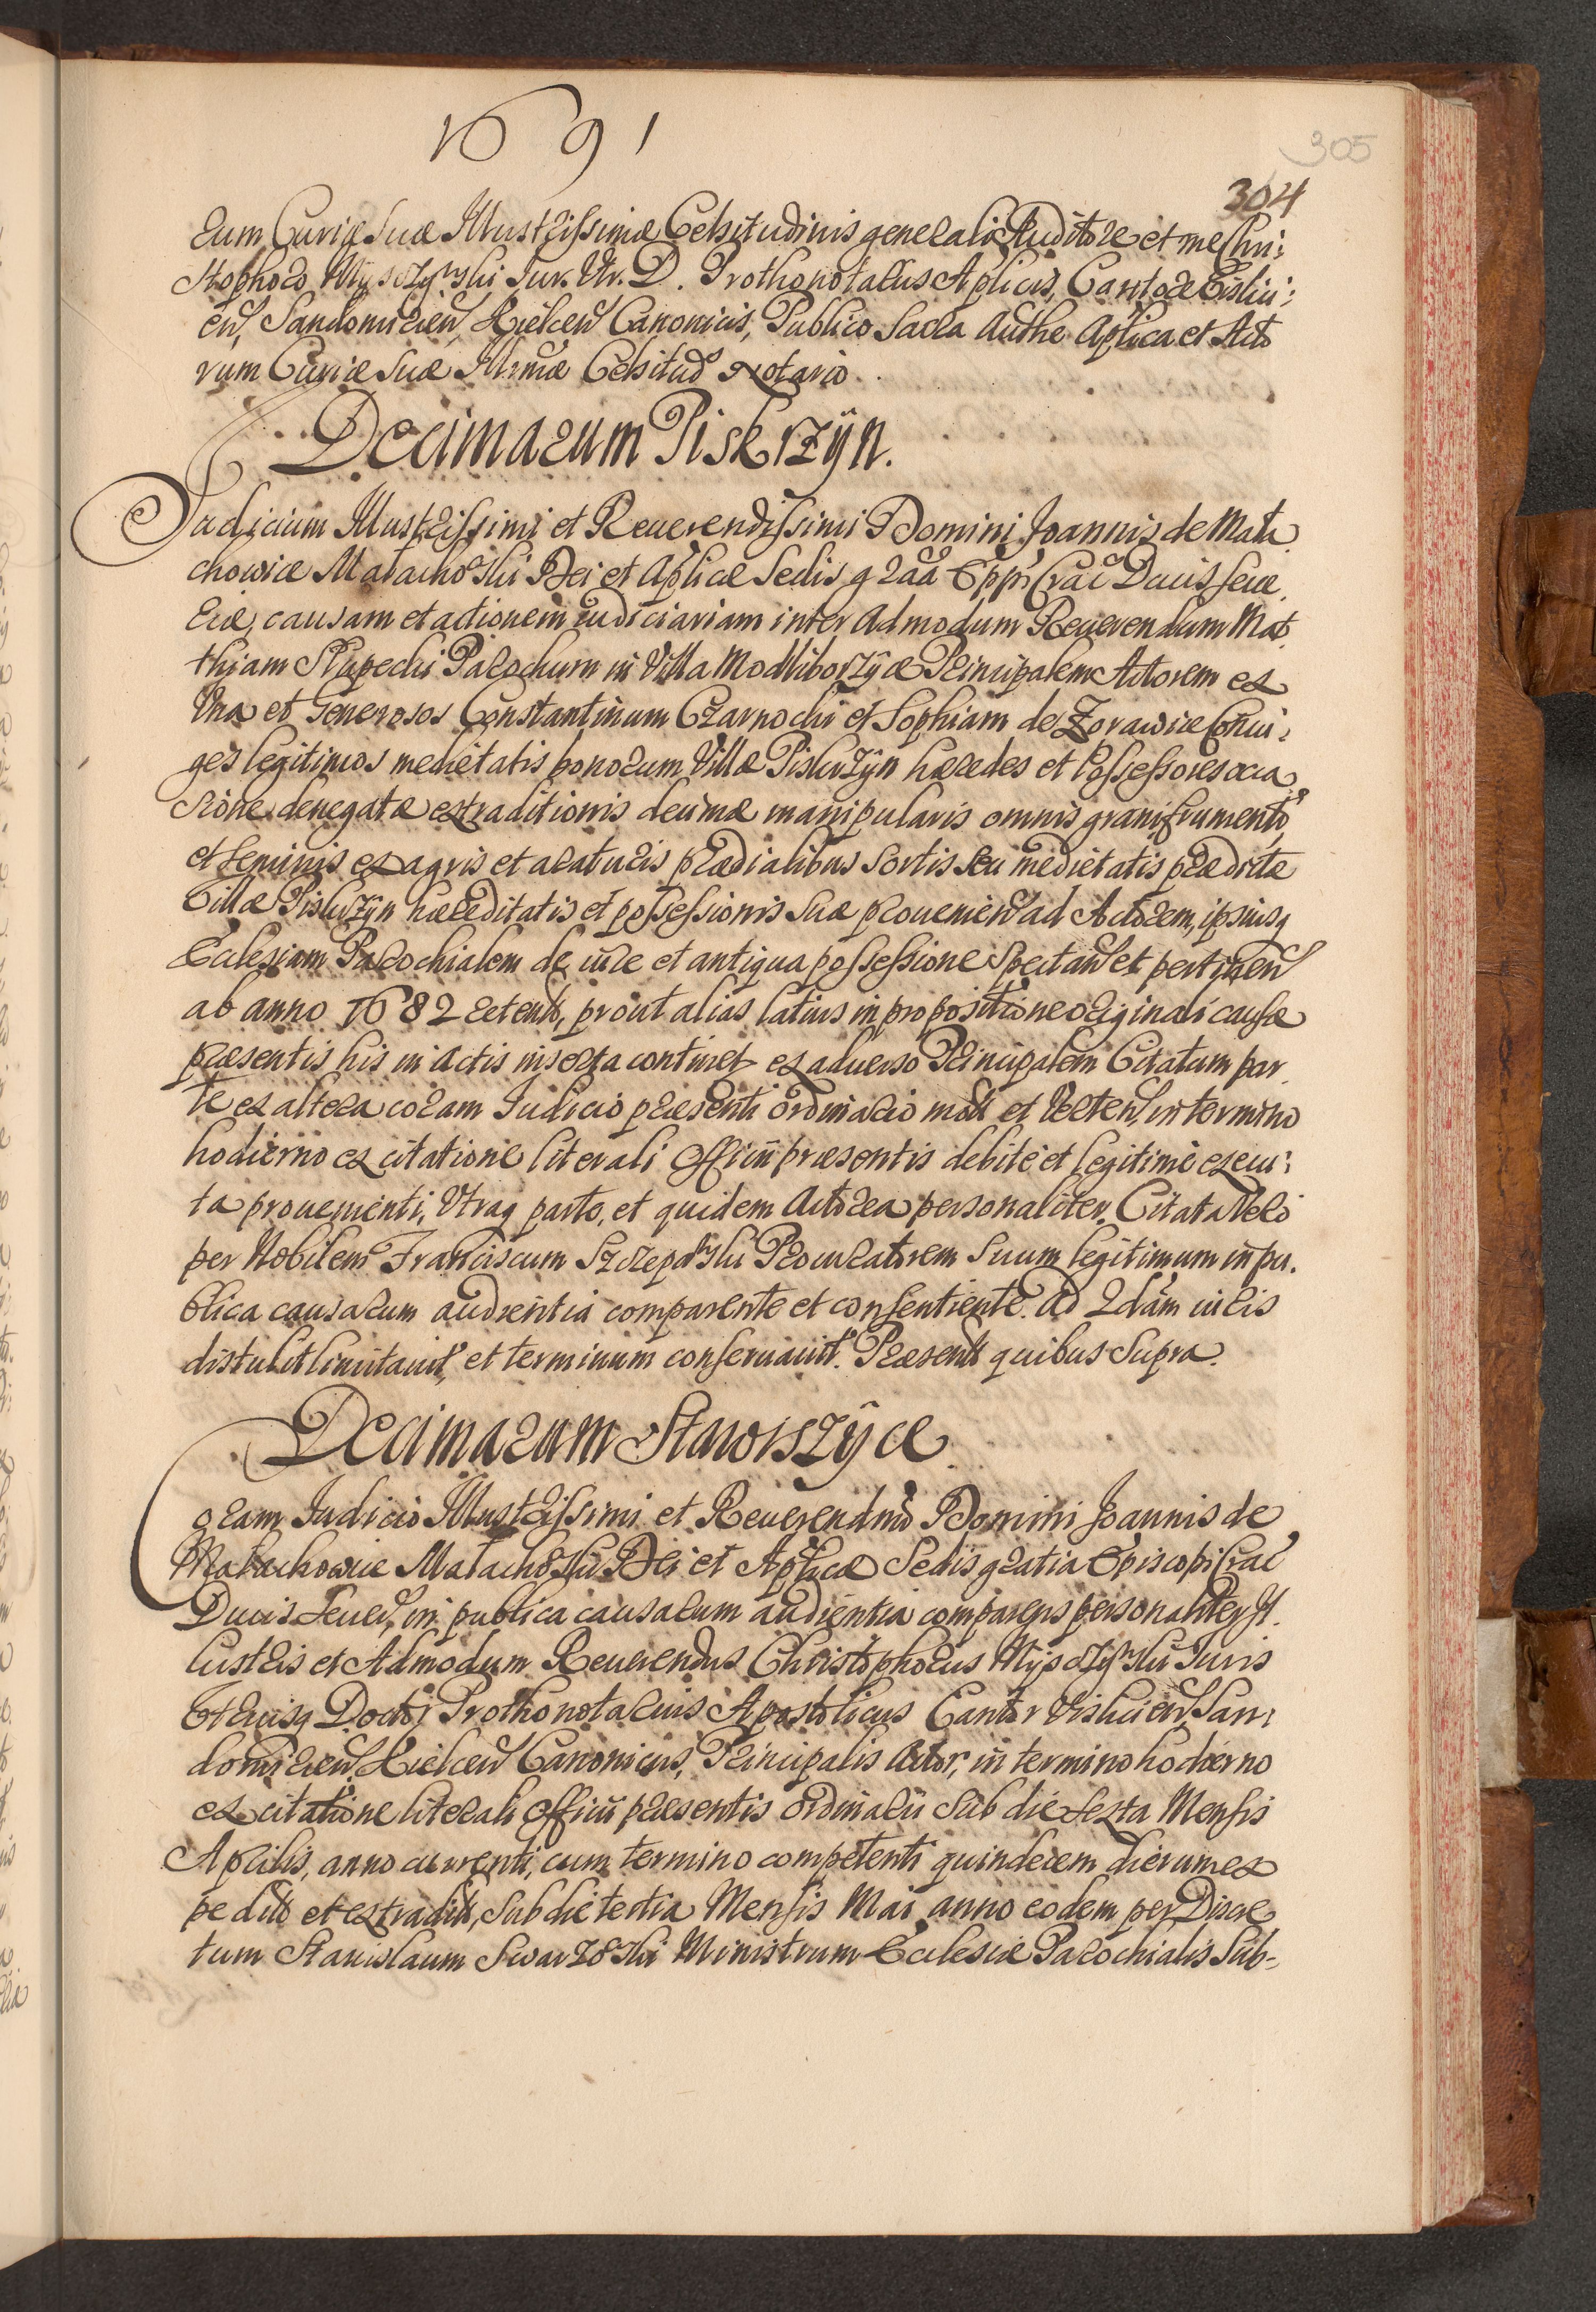 1691
305
304
rum Curiæ Suæ Illustrissimæ Celsitudinis generali Auditore et me Chri:
stophoro Myszczyński Jur. Utr. D. Prothonotarius Aplicus, Cantore Vislici:
en, Sandomirien, Kielcen Canonicis, Publico Sacra Authe Aplica et Acto
rum Curiæ Suæ Illrmæ Celsitud Notario.
Decimarum Piskrzÿn.
Judicium Illustrissimi et Reuerendissimi Domini Joannis de Mała
chowice Małachoski Dei et Aplicæ Sedis graã Eppi Crac Ducis Seue
riæ, causam et actionem iudiciariam inter Admodum Reuerendum Mat
thiam Słupecki Parochum in Villa Modliborzÿce Principalem Actorem ex
Vna et Generosos Constantinum Czarnocki et Sophiam de Zorawice Coniu:
ges legitimos medietatis bonorum Villæ Piskrzÿn hæredes et Possessores occa
sione denegatæ extraditionis decimæ manipularis omnis grani frumenti,
et seminis ex agris et araturis prædialibus sortis seu medietatis prædictæ
Villæ Piskrzÿn hæreditatis et possessionis suæ prouenien ad Actorem, ipsiusq
Ecclesiam Parochialem de iure et antiqua possessione spectan et pertinen
ab anno 1682 retent, prout alias latius in propositione originali causæ
præsentis his in actis inserta continet ex aduerso Principalem Citatum par
te ex altera coram Judicio præsenti ordinario mot et verten, in termino
hodierno ex citatione literali Officii præsentis debitè et legitimè execu:
ta prouenienti, Vtraq parte, et quidem Actorea personaliter. Citata Vero
per Nobilem Franciscum Szczepański Procuratorem Suum legitimum in pu.
blica causarum audientia comparente et consentiente. Ad 2dam iuris
distulit limitauit, et terminum conseruauit. Præsent quibus Supra.
Decimarum Stawiszÿce
Coram Judicio Illustrissimi et Reuerendmi Domini Joannis de
Małachowice Małachoski Dei et Aplicæ Sedis gratia Episcopi Crac
Ducis Seuer, in publica causarum audientia comparens personaliter Il
lustris et Admodum Reuerendus Christophorus Myszczyński Juris
Vtriusq Doctor Prothonotarius Apostolicus Cantor Vislicien, San:
domirien Kielcen Canonicus, Principalis Actor, in termino hodierno
ex citatione literali Officii præsentis ordinarii sub die sexta Mensis
Aprilis, anno currenti, cum termino competenti quindecem dierum ex
pedit et extradit, sub die tertia Mensis Mai anno eodem per Discre
tum Stanislaum Ministrum Ecclesiæ Parochialis Sub-